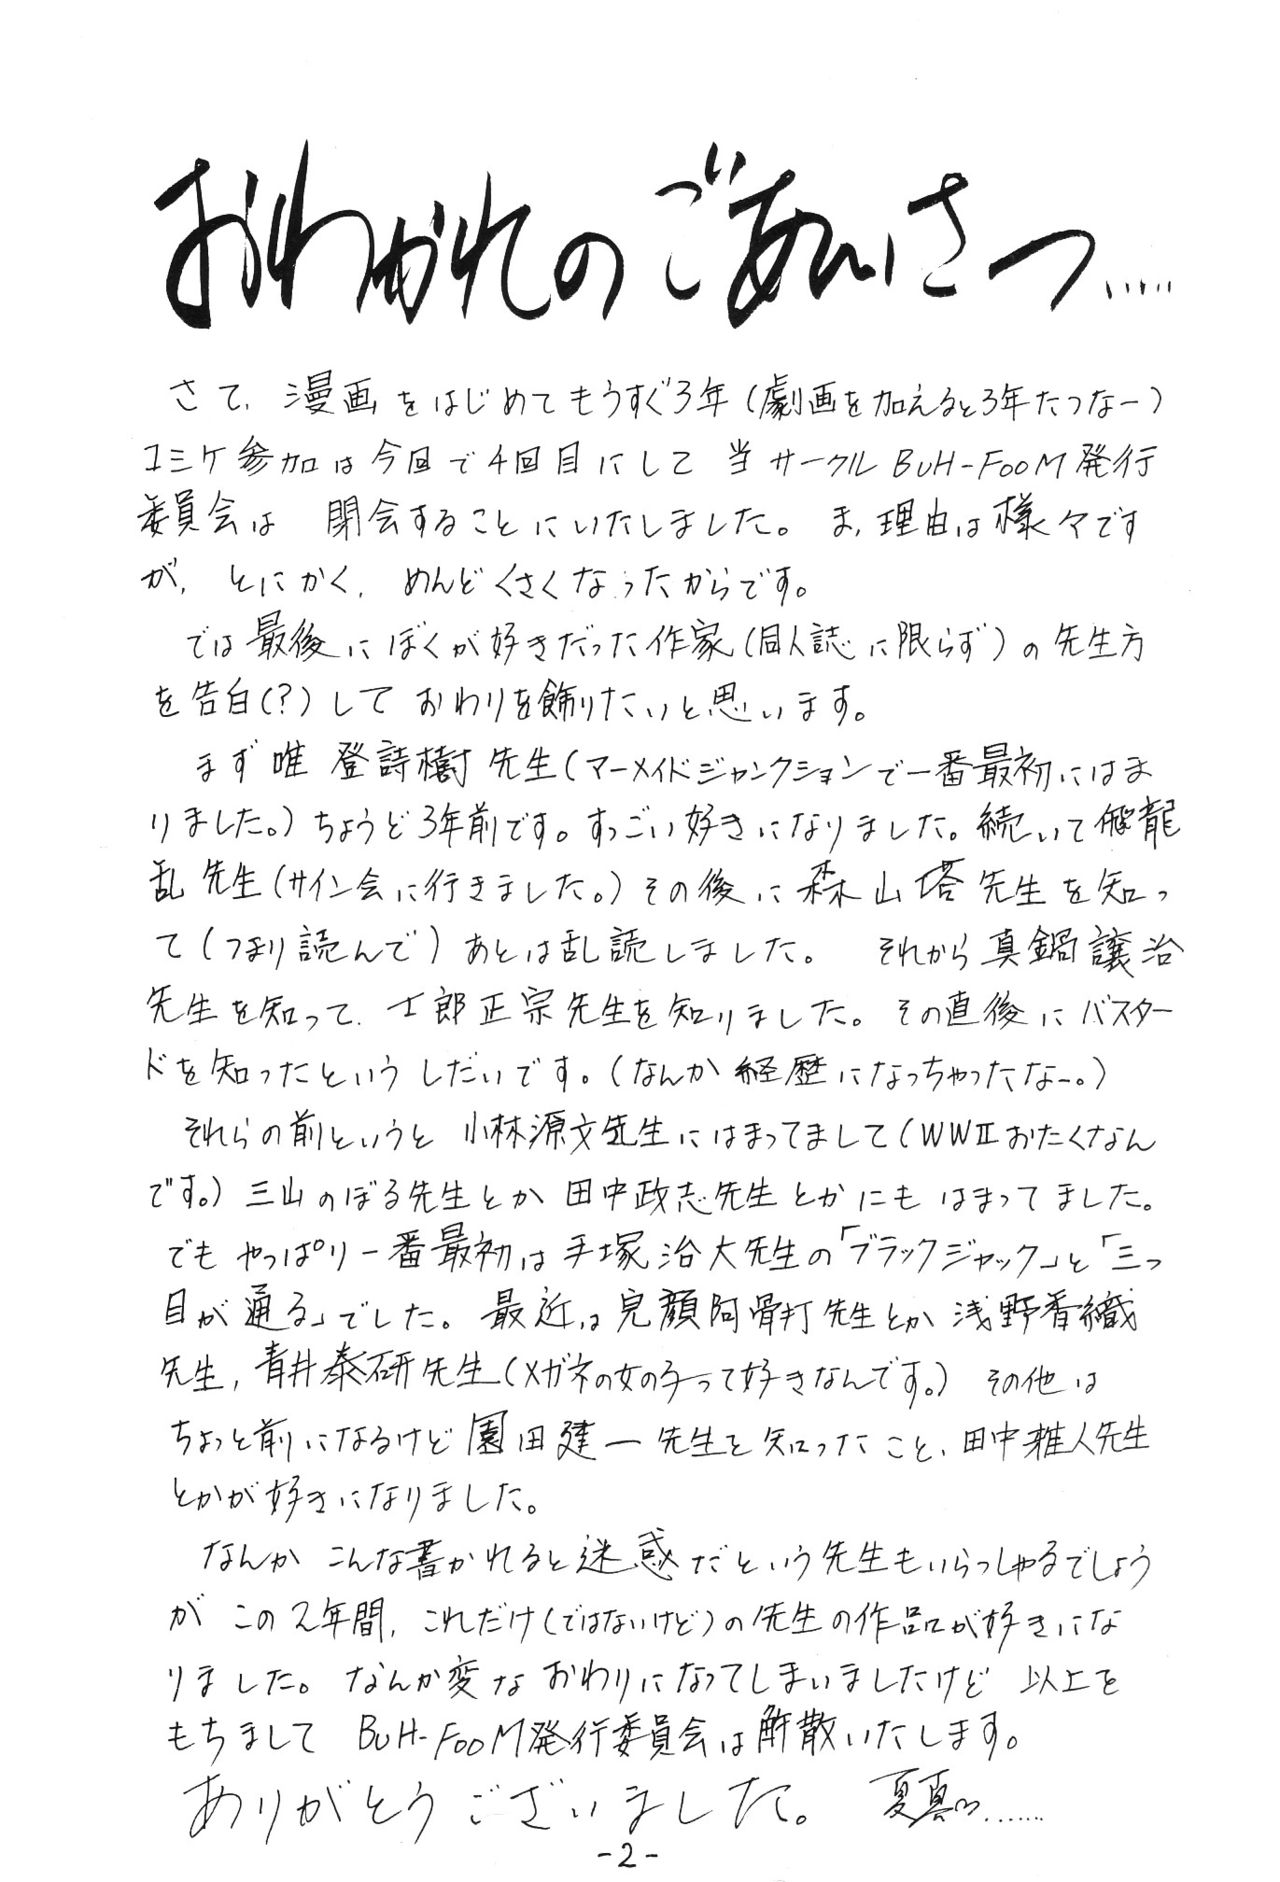 おわかれのごあいさつ.....
さて、漫画をはじめてもうすぐ3年(劇画を加えると3年たつなー)
コミケ参加は今回で4回目にして 当サークルBUH-FOOM発行
委員会は 閉会することにいたしました。ま、理由は様々です
が、とにかく、めんどくさくなったからです。
では最後にぼくが好きだった作家(同人誌に限らず)の先生方
を告白(?)して おわりを飾りたいと思います。
まず唯 登詩樹先生(マーメイドジャンクションで一番最初にはま
りました。)ちょうど3年前です。すっごい好きになりました。続いて飛龍
乱先生(サイン会に行きました。)その後に森山塔先生を知っ
て(つまり読んで)あとは乱読しました。 それから真鍋譲治
先生を知って、士郎正宗先生を知りました。その直後にバスター
ドを知ったというしだいです。(なんか経歴になっちゃったなー。)
それらの前というと 小林源文先生にはまってまして(WWⅡおたくなん
です。)三山のぼる先生とか 田中政志先生とかにも はまってました。
でもやっぱり一番最初は手塚治大先生の「ブラックジャック」と「三つ
目が通る」でした。最近は児顔阿骨打先生とか 浅野香織
先生,青井泰研先生(メガネの女の子って好きなんです。) その他は
ちょっと前になるけど園田建一先生を知ったこと、田中雅人先生
とかが好きになりました。
なんか こんな書かれると迷惑だという先生もいらっしゃるでしょう
が この2年間、これだけ(ではないけど)の先生の作品が好きにな
りました。なんか変な おわりになってしまいましたけど 以上を
もちまして BUH-FOOM発行委員会は解散いたします。
ありがとうございました。 夏真
-2-